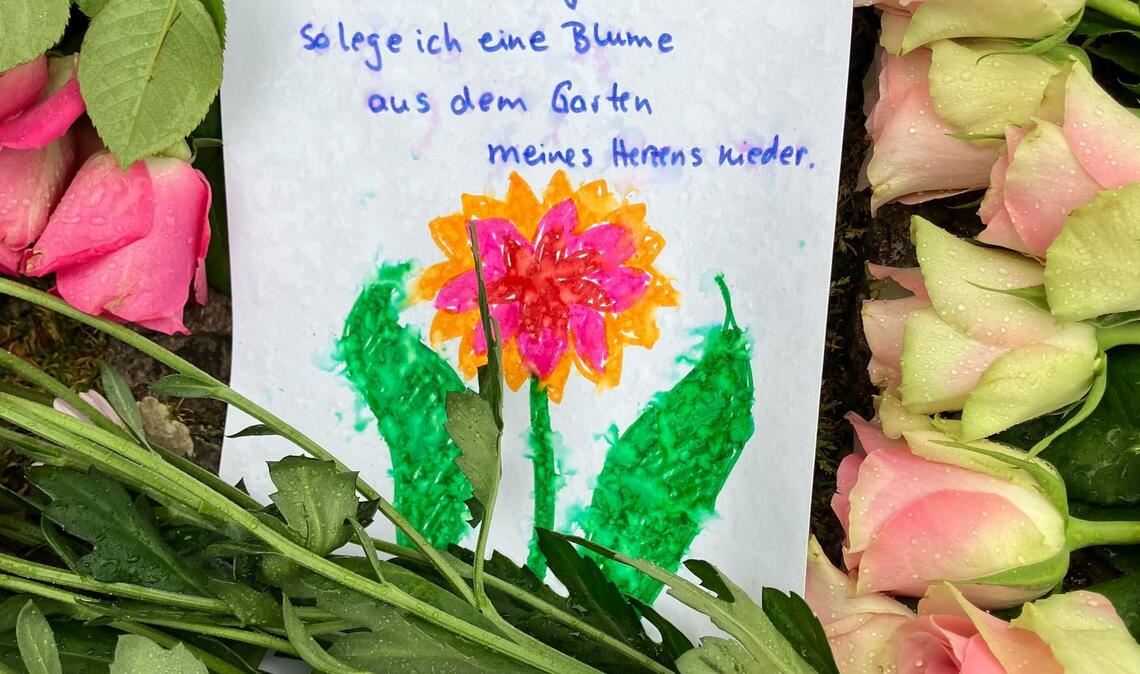 so lege ich eine Blume
aus dem Garten
meines Herzens nieder.